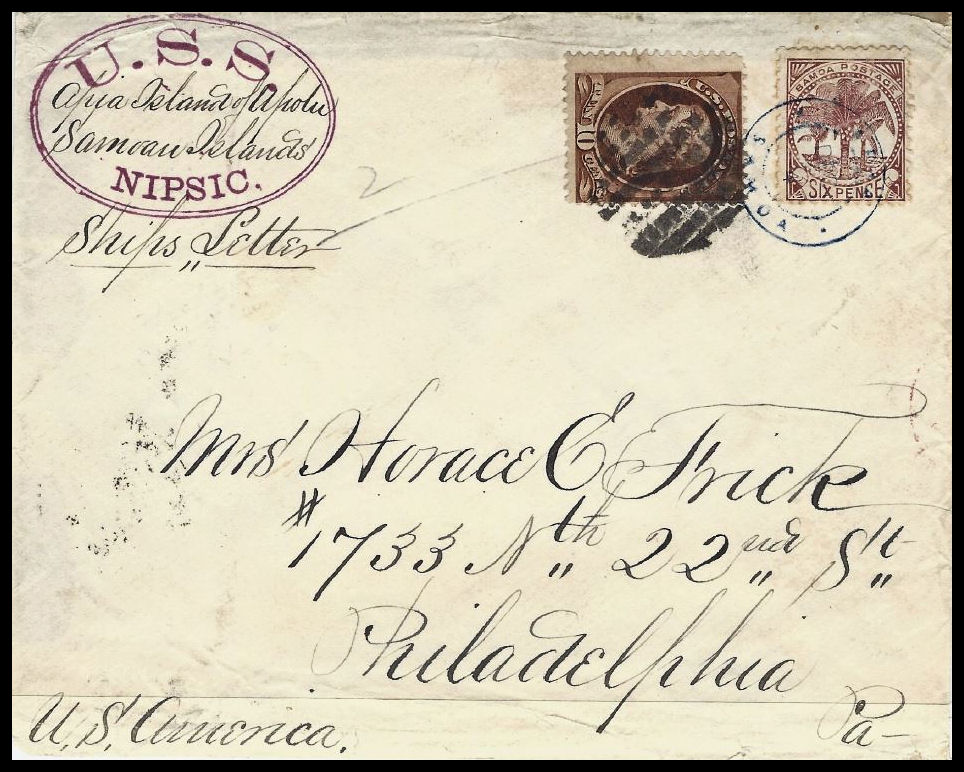 U.S.S.
Apia Island of Apolu
Samoan Islands
NIPSIC.
Ships Letter
2
10
SAMOA POSTAGE
SIX PENCE
Mrs Horace E Frick
# 1733 Nth 22nd St
Philadelphia
Pa-
U.S. America.